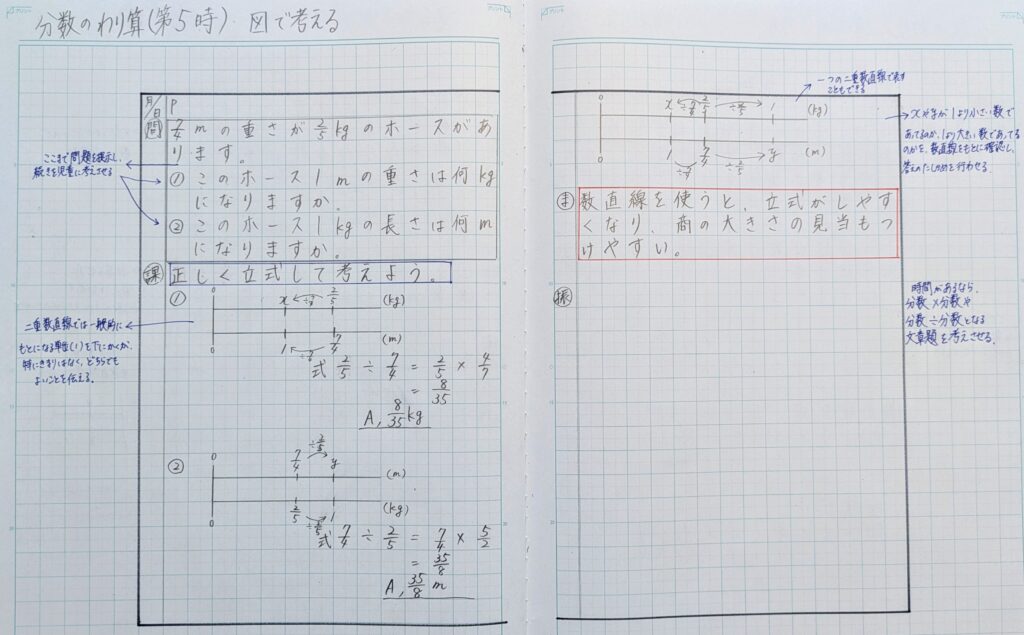 分数のわり算(第5時) 図で考える
月/日 P
問 7/4 mの重さが 2/5 kgのホースがあ
ります。
① このホース1mの重さは何kg
になりますか。
② このホース1kgの長さは何m
になりますか。
ここまで問題を提示し、
続きを児童に考えさせる
課 正しく立式して考えよう。
①
0 x 2/5 (kg)
÷7/4
0 1 7/4 (m)
÷7/4
式 2/5 ÷ 7/4 = 2/5 × 4/7
= 8/35
A, 8/35 kg
二重数直線では一般的に
もとになる単位(1)を下にかくが、
特にきまりはなく、どちらでも
よいことを伝える。
②
÷2/5
0 7/4 y (m)
0 2/5 1 (kg)
÷2/5
式 7/4 ÷ 2/5 = 7/4 × 5/2
= 35/8
A, 35/8 m
一つの二重数直線で表す
こともできる
0 x ÷7/4 2/5 ÷2/5 1 (kg)
0 1 7/4 y (m)
÷7/4 ÷2/5
xやyが1より小さい数で
あるのか、1より大きい数であるの
かを、数直線をもとに確認し、
答えのたしかめを行わせる。
ま 数直線を使うと、立式がしやす
くなり、商の大きさの見当もつ
けやすい。
振
時間があるなら、
分数×分数や
分数÷分数となる
文章題を考えさせる。